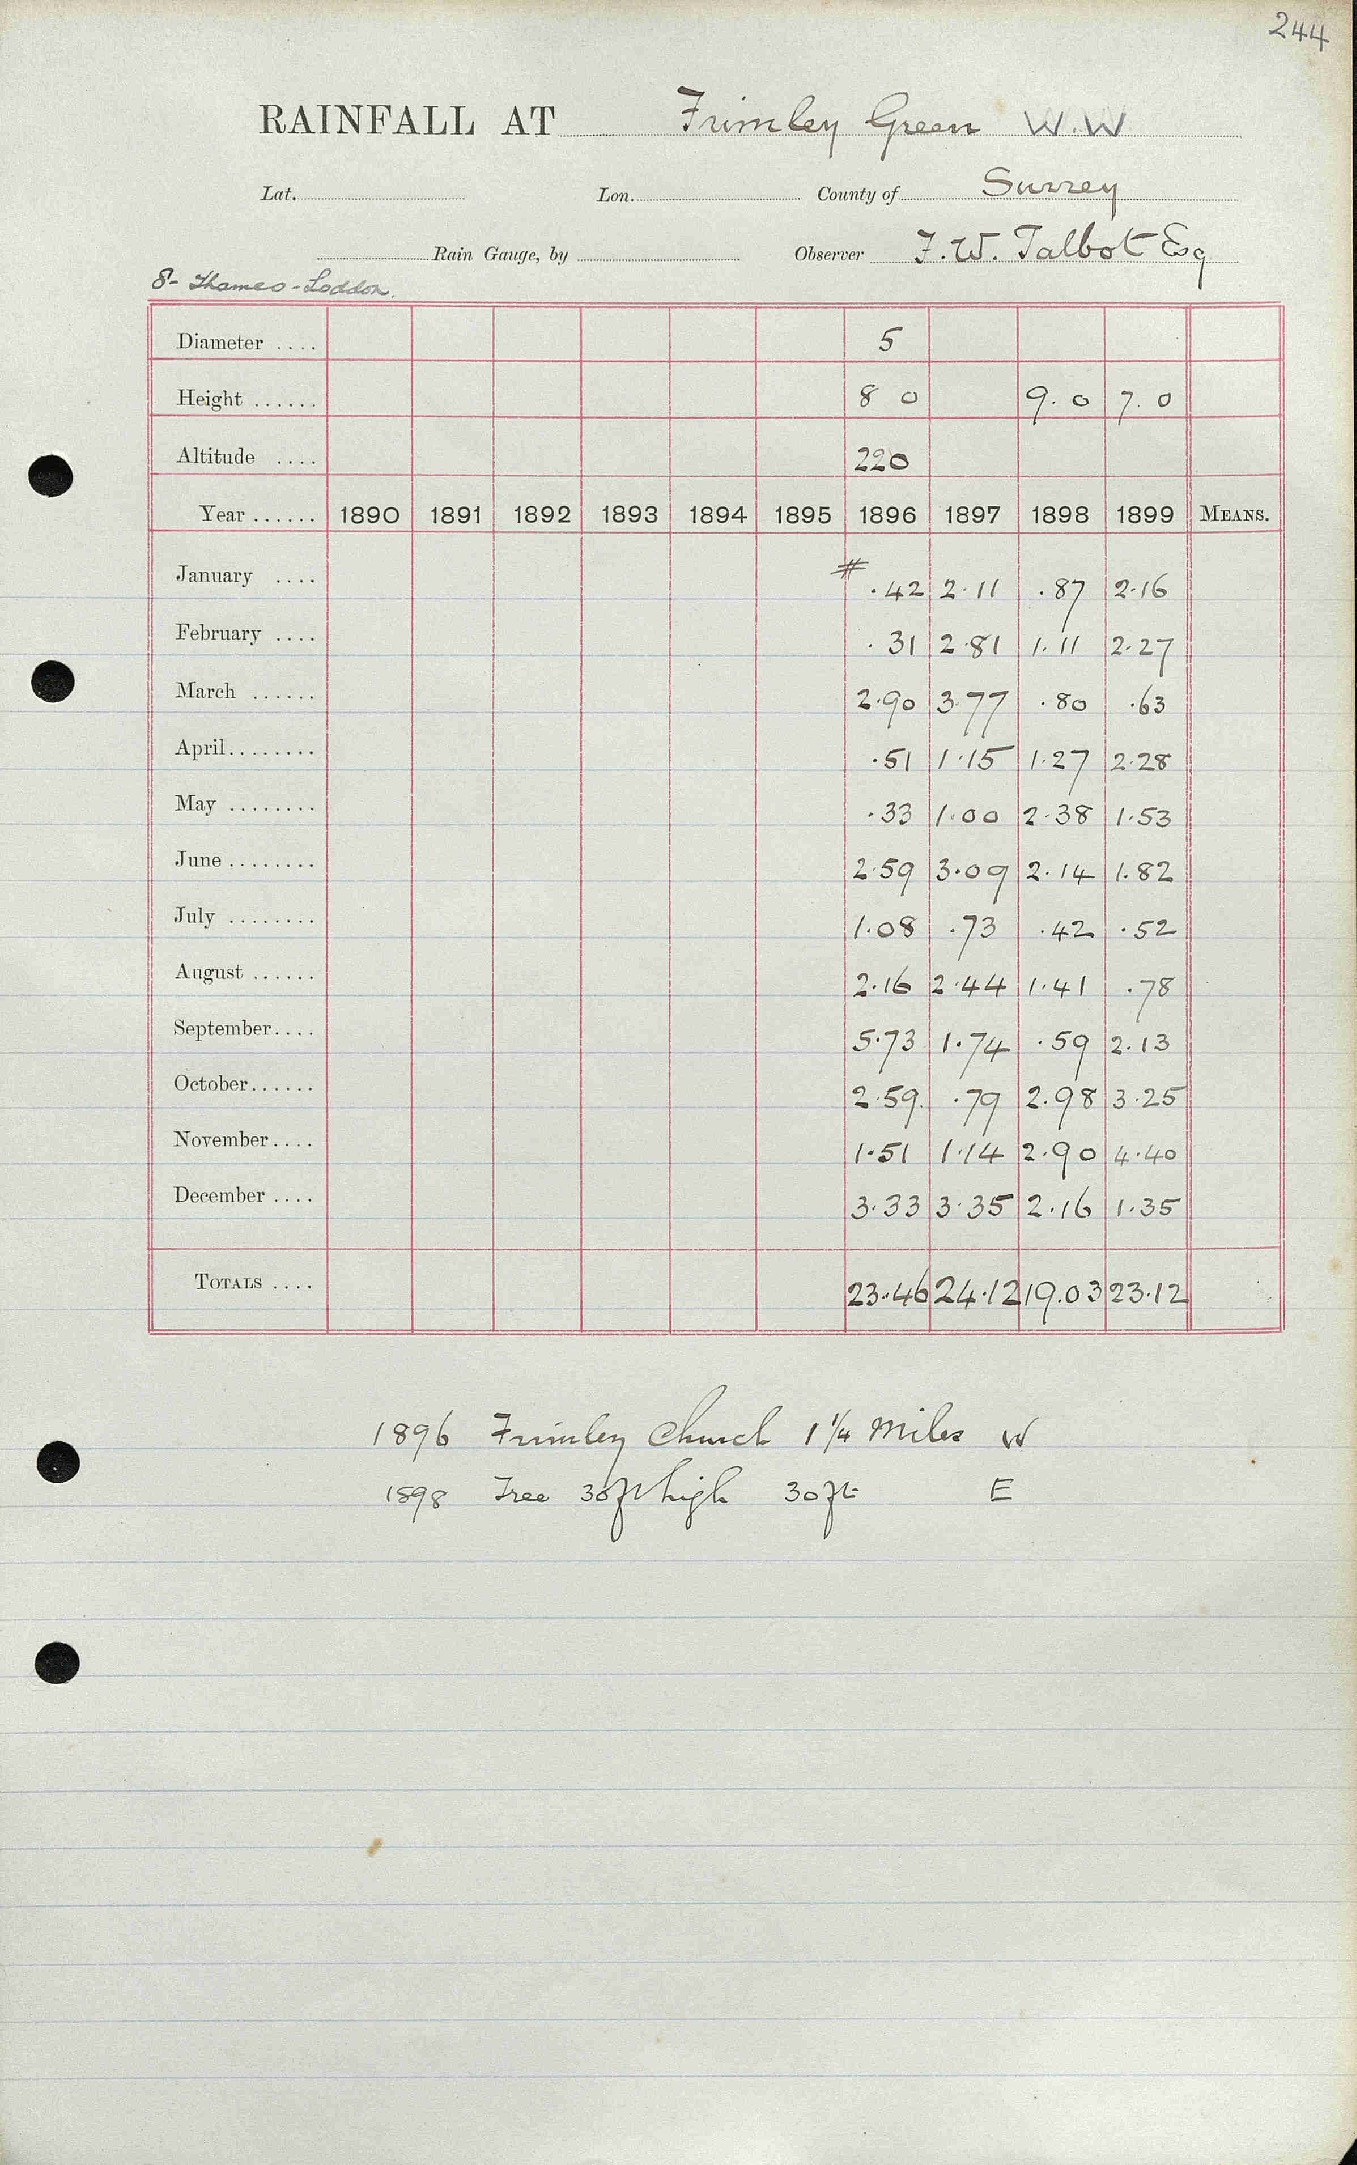 244
RAINFALL AT Frimley Green W.W
Lat. Lon. County of Surrey
Rain Gauge, by Observer F. W. Talbot Esq
8- Thames - Loddon.
Diameter .... 5
Height ...... 8 0 9. 0 7. 0
Altitude .... 220
Year ...... 1890 1891 1892 1893 1894 1895 1896 1897 1898 1899 MEANS.
January .... # .42 2.11 .87 2.16
February .... .31 2.81 1.11 2.27
March ...... 2.90 3.77 .80 .63
April........ .51 1.15 1.27 2.28
May ........ .33 1.00 2.38 1.53
June ........ 2.59 3.09 2.14 1.82
July ........ 1.08 .73 .42 .52
August ...... 2.16 2.44 1.41 .78
September.... 5.73 1.74 .59 2.13
October...... 2.59 .79 2.98 3.25
November.... 1.51 1.14 2.90 4.40
December .... 3.33 3.35 2.16 1.35
TOTALS .... 23.46 24.12 19.03 23.12
1896 Frimley Church 1 1/4 Miles W
1898 Tree 30ft high 30ft E